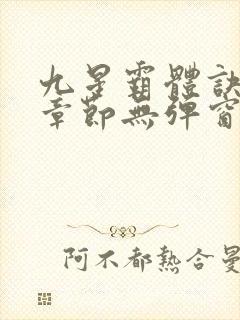 九星霸體訣
章節無彈窗
阿不都熱合曼